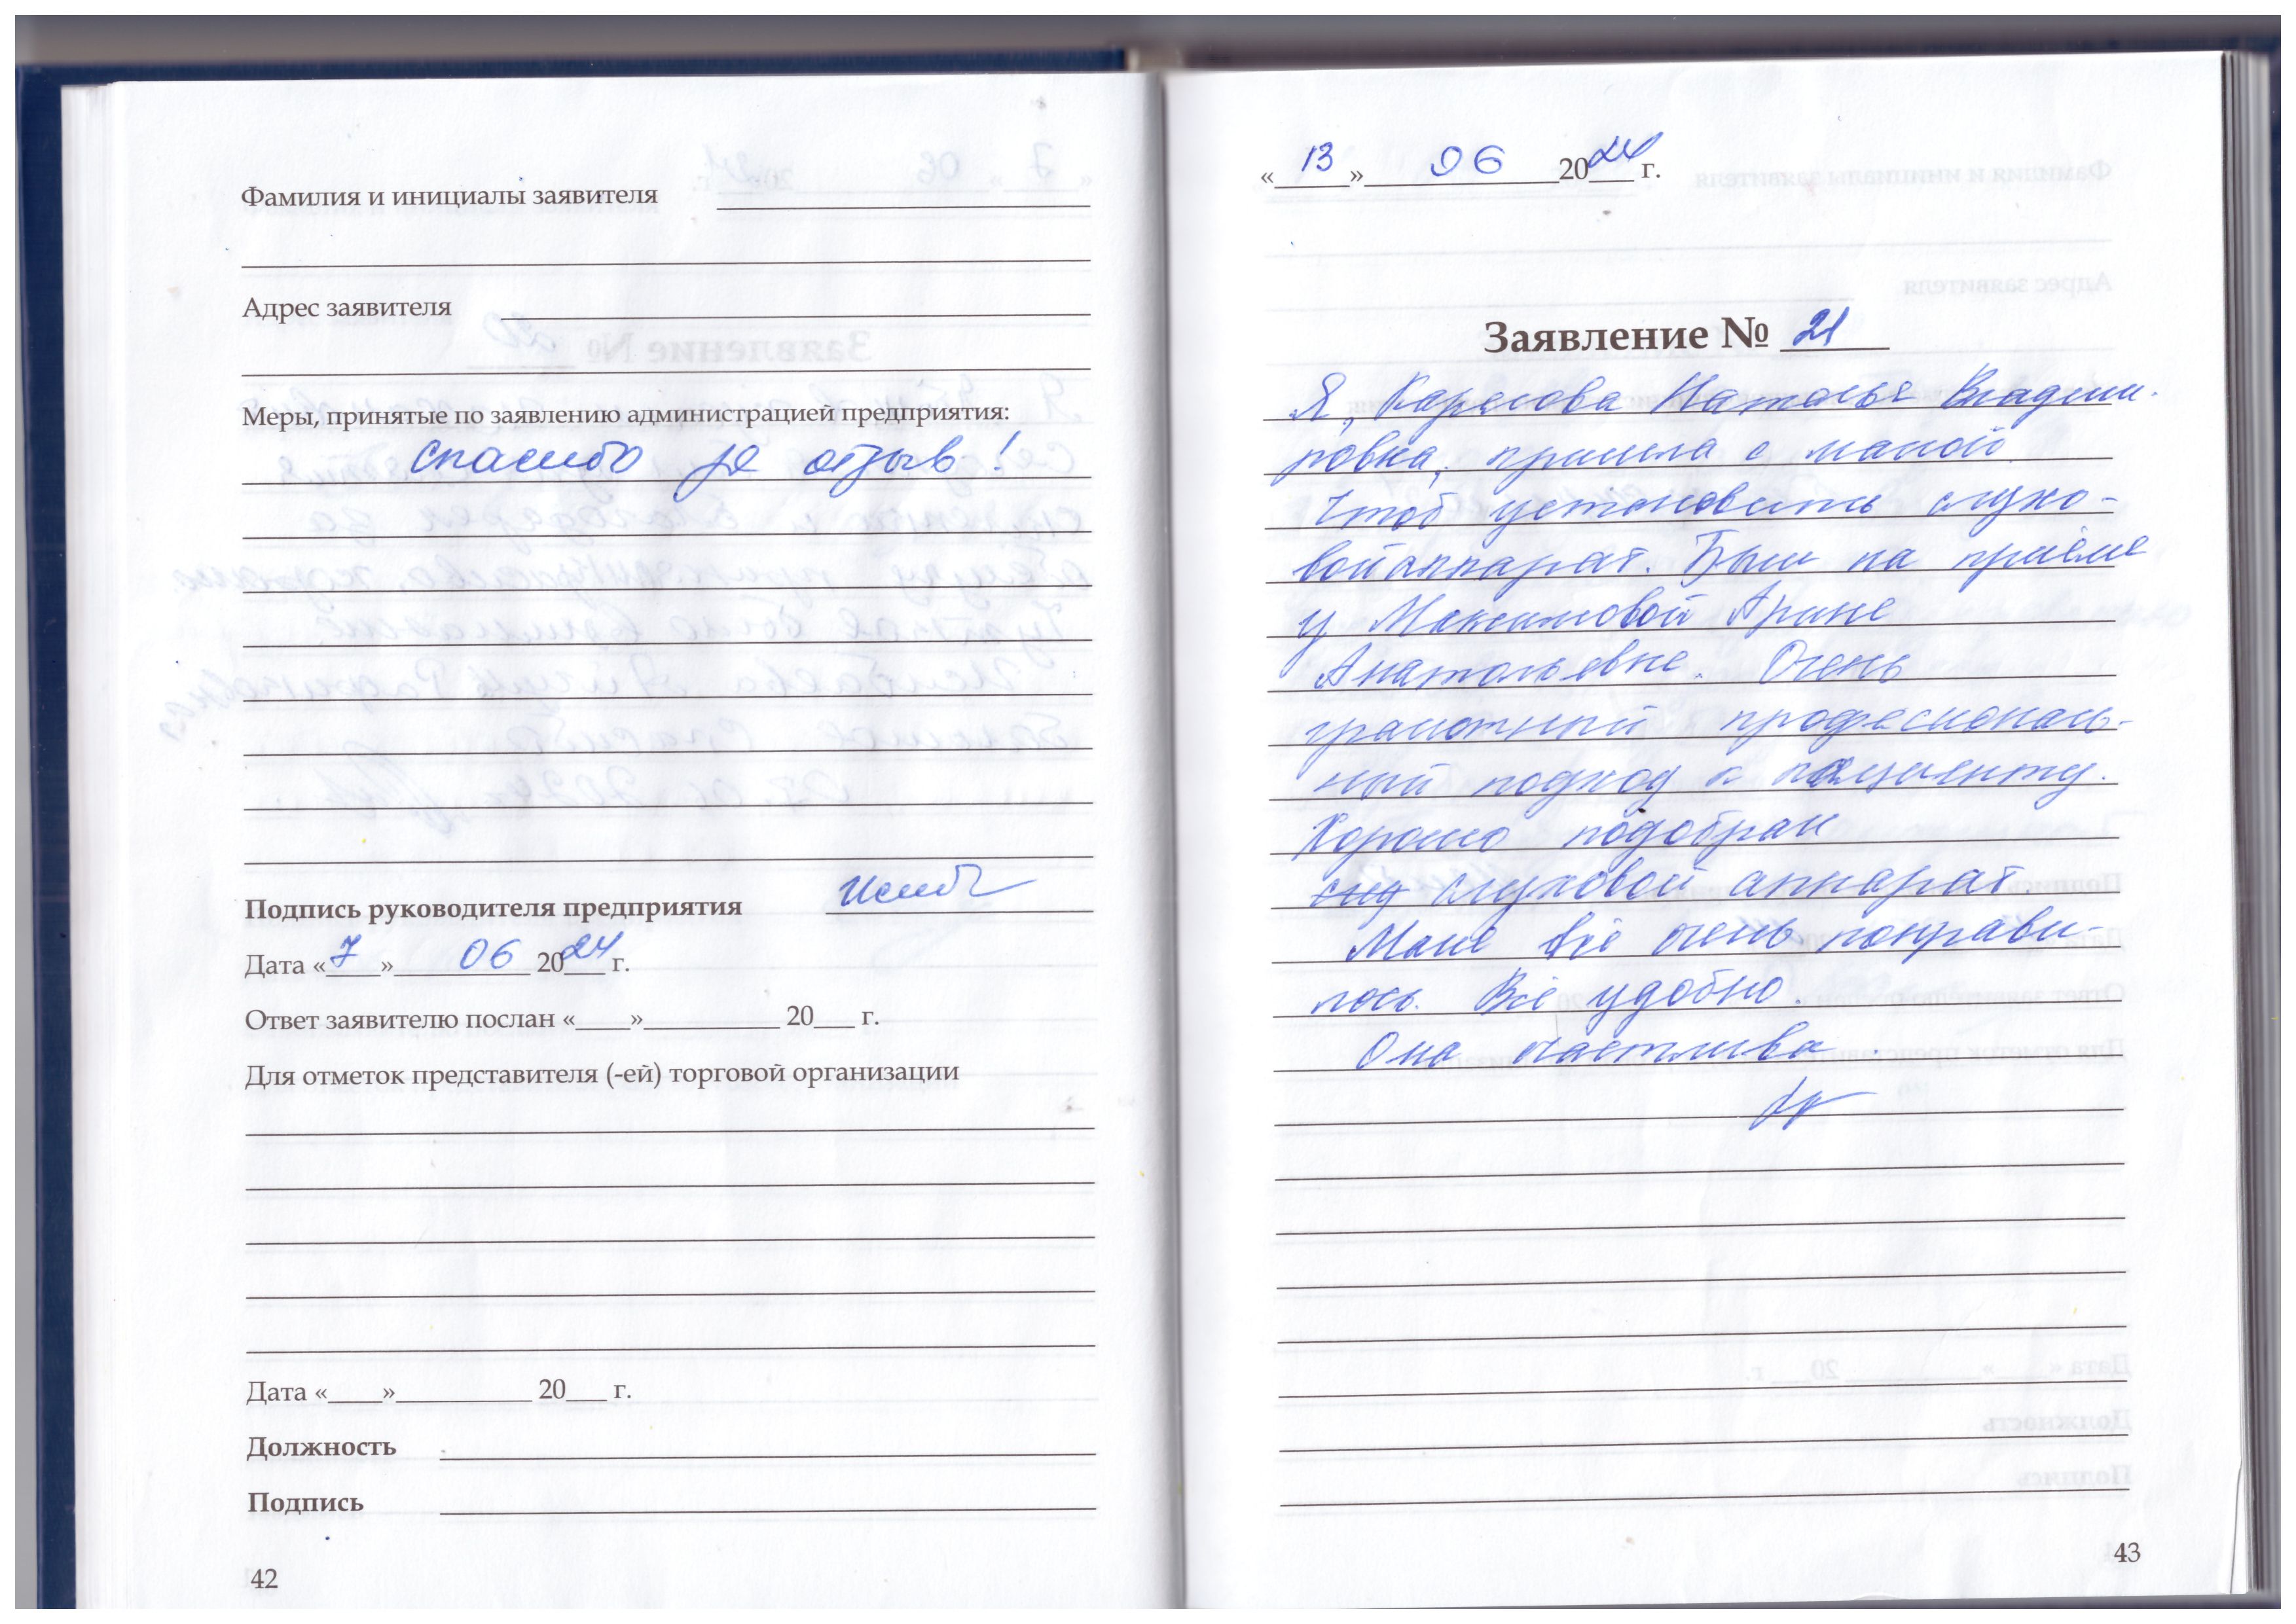 Фамилия и инициалы заявителя
Адрес заявителя
Меры, принятые по заявлению администрацией предприятия:
спасибо за отзыв!
Подпись руководителя предприятия
Дата «7» 06 2024 г.
Ответ заявителю послан «____»__________ 20___ г.
Для отметок представителя (-ей) торговой организации
Дата «____»__________ 20___ г.
Должность
Подпись
42
«13» 06 2024 г.
Заявление № 21
Я, Наталья Влади-
ровна, пришла с мамой
Чтоб установить слухо-
войаппарат. Были на приёме
у Максимовой Арине
Анатольевне. Очень
грамотный професиональ-
ный подход к пациенту.
Хорошо подобран
слуховой аппарат
Маме всё очень понрави-
лось. Всё удобно.
Она счастлива.
43